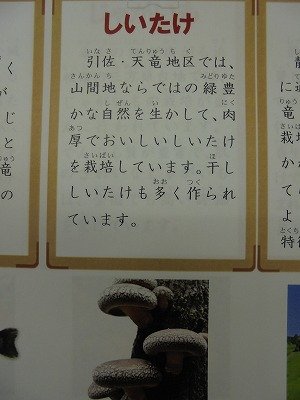 しいたけ
引佐・天竜地区では、
山間地ならではの緑豊
かな自然を生かして、肉
厚でおいしいしいたけ
を栽培しています。干し
しいたけも多く作られ
ています。